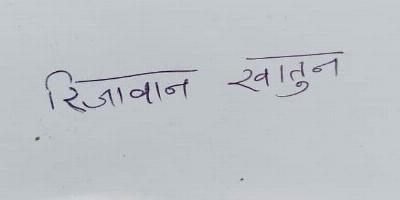 रिजावान खातुन